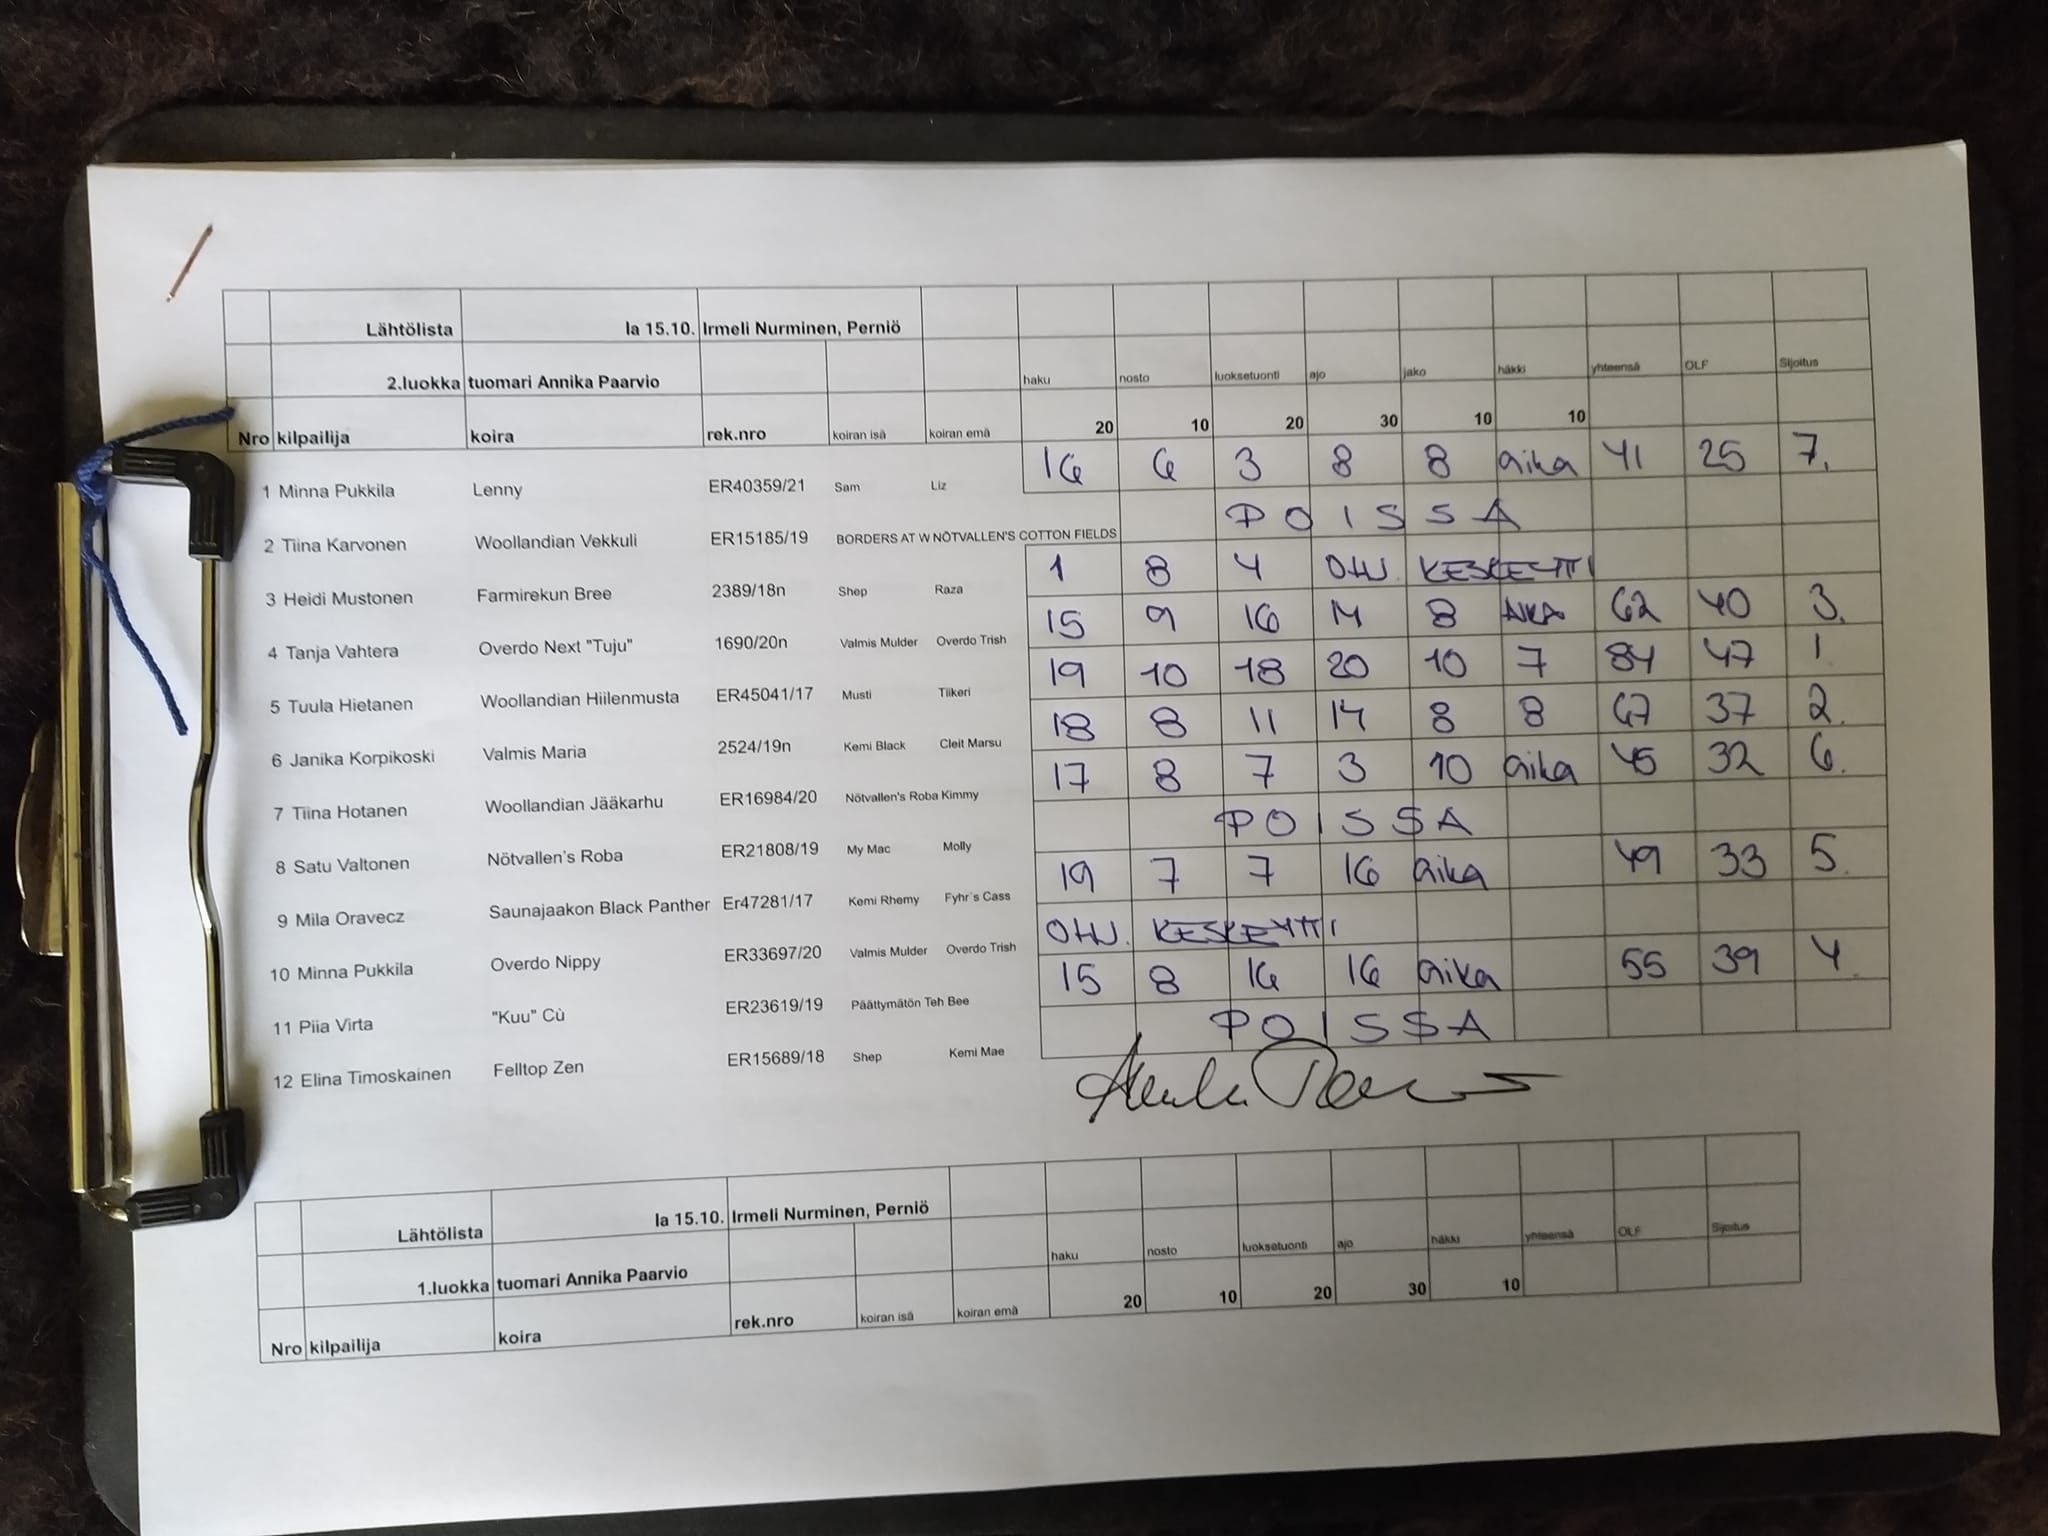 Lähtölista la 15.10. Irmeli Nurminen, Perniö
2.luokka tuomari Annika Paarvio haku nosto luoksetuonti ajo jako häkki yhteensä OLF Sijoitus
Nro kilpailija koira rek.nro koiran isä koiran emä 20 10 20 30 10 10
1 Minna Pukkila Lenny ER40359/21 Sam Liz 16 6 3 8 8 aika 41 25 7.
2 Tiina Karvonen Woollandian Vekkuli ER15185/19 BORDERS AT W NÖTVALLEN'S COTTON FIELDS POISSA
3 Heidi Mustonen Farmirekun Bree 2389/18n Shep Raza 1 8 4 OHJ. KESKEYTTI
4 Tanja Vahtera Overdo Next "Tuju" 1690/20n Valmis Mulder Overdo Trish 15 9 16 14 8 AIKA 62 40 3.
5 Tuula Hietanen Woollandian Hiilenmusta ER45041/17 Musti Tiikeri 19 10 18 20 10 7 84 47 1
6 Janika Korpikoski Valmis Maria 2524/19n Kemi Black Cleit Marsu 18 8 11 14 8 8 67 37 2.
7 Tiina Hotanen Woollandian Jääkarhu ER16984/20 Nötvallen's Roba Kimmy 17 8 7 3 10 aika 45 32 6.
8 Satu Valtonen Nötvallen's Roba ER21808/19 My Mac Molly POISSA
9 Mila Oravecz Saunajaakon Black Panther Er47281/17 Kemi Rhemy Fyhr´s Cass 19 7 7 16 aika 49 33 5.
10 Minna Pukkila Overdo Nippy ER33697/20 Valmis Mulder Overdo Trish OHJ. KESKEYTTI
11 Piia Virta "Kuu" Cù ER23619/19 Päättymätön Teh Bee 15 8 16 16 aika 55 39 4.
12 Elina Timoskainen Felltop Zen ER15689/18 Shep Kemi Mae POISSA
Lähtölista la 15.10. Irmeli Nurminen, Perniö
1.luokka tuomari Annika Paarvio haku nosto luoksetuonti ajo häkki yhteensä OLF Sijoitus
Nro kilpailija koira rek.nro koiran isä koiran emä 20 10 20 30 10